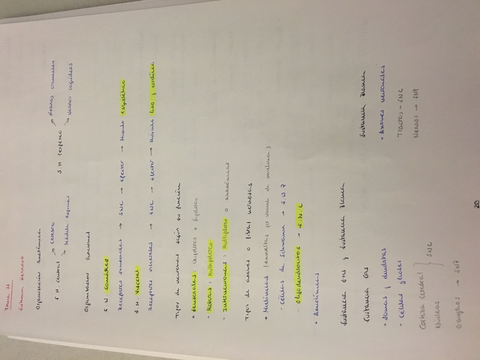 Tema 11
Sistema nervioso
Organización anatómica
S N central → cerebro
→ médula espinal
S N periférico → nervios craneales
→ nervios raquídeos
Organización funcional
S N Somático
Receptores → SNC → efector → Músculo esquelético
S N Visceral
Receptores viscerales → SNC → efector → Músculo liso y cardíaco
Tipos de neuronas según su función
• Sensoriales
• Motoras: Multipolares
• Interneuronas: Multipolares o
Tipos de axones o fibras nerviosas
• Mielínicos
- Células de Schwann → S.N.P
Oligodendrocitos → S.N.C
• Amielínicos
Sustancia Gris y Sustancia Blanca
Sustancia Gris
• Somas y dendritas
• Células gliales
Corteza cerebral
Núcleos
} SNC
Ganglios → SNP
Sustancia Blanca
• Axones
Tractos - SNC
Nervios → SNP